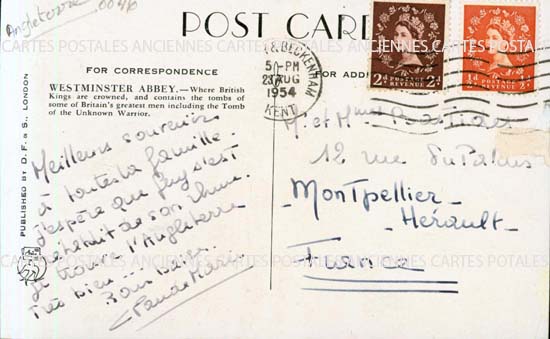 Angleterre 0046
POST CARD
CARTES POSTALES ANCIENNES CARTES POSTALES
FOR CORRESPONDENCE
WESTMINSTER ABBEY.—Where British
Kings are crowned, and contains the tombs of
some of Britain's greatest men including the Tomb
of the Unknown Warrior.
PUBLISHED BY D. F. & S., LONDON
Meilleurs souvenirs
à toute la famille.
J'espère que Guy s'est
rétabli de son rhume.
Je trouve l'Angleterre
très bien...
Bons baisers
Claude Marie
& BECKENHAM
5 0 - PM
23 AUG
1954
KENT
2d POSTAGE REVENUE 2d
½d POSTAGE REVENUE
FOR ADD
M. et Mme
12 rue du Palais
Montpellier-
-Hérault-
France
CARTES POSTALES ANCIENNES CARTES POTALES